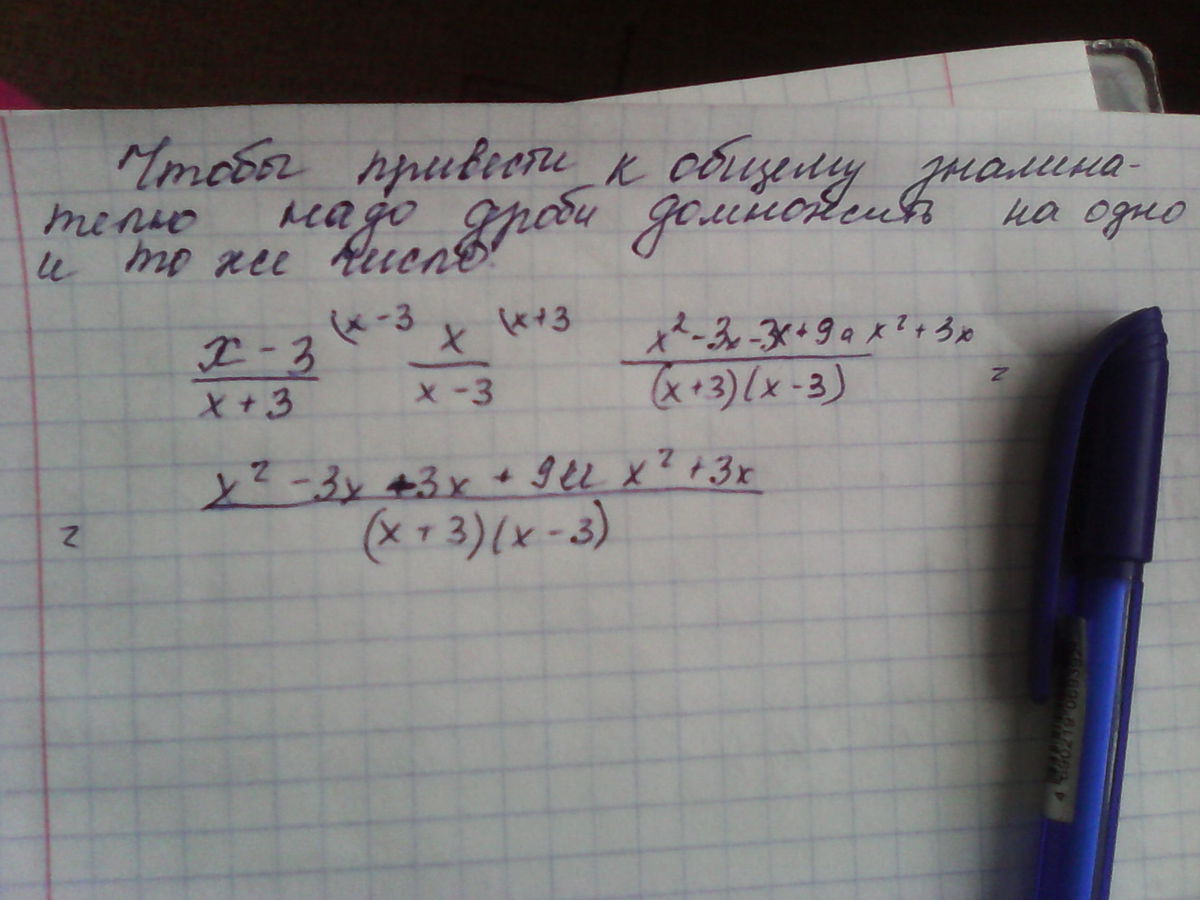 Чтобы привести к общему знамена-
телю надо дроби домножить на одно
и то же число.
x - 3 (x - 3 x (x+3 x² - 3x - 3x + 9 и x² + 3x
x + 3 x - 3 (x+3)(x - 3) =
x² - 3x - 3x + 9 и x² + 3x
= (x + 3)(x - 3)